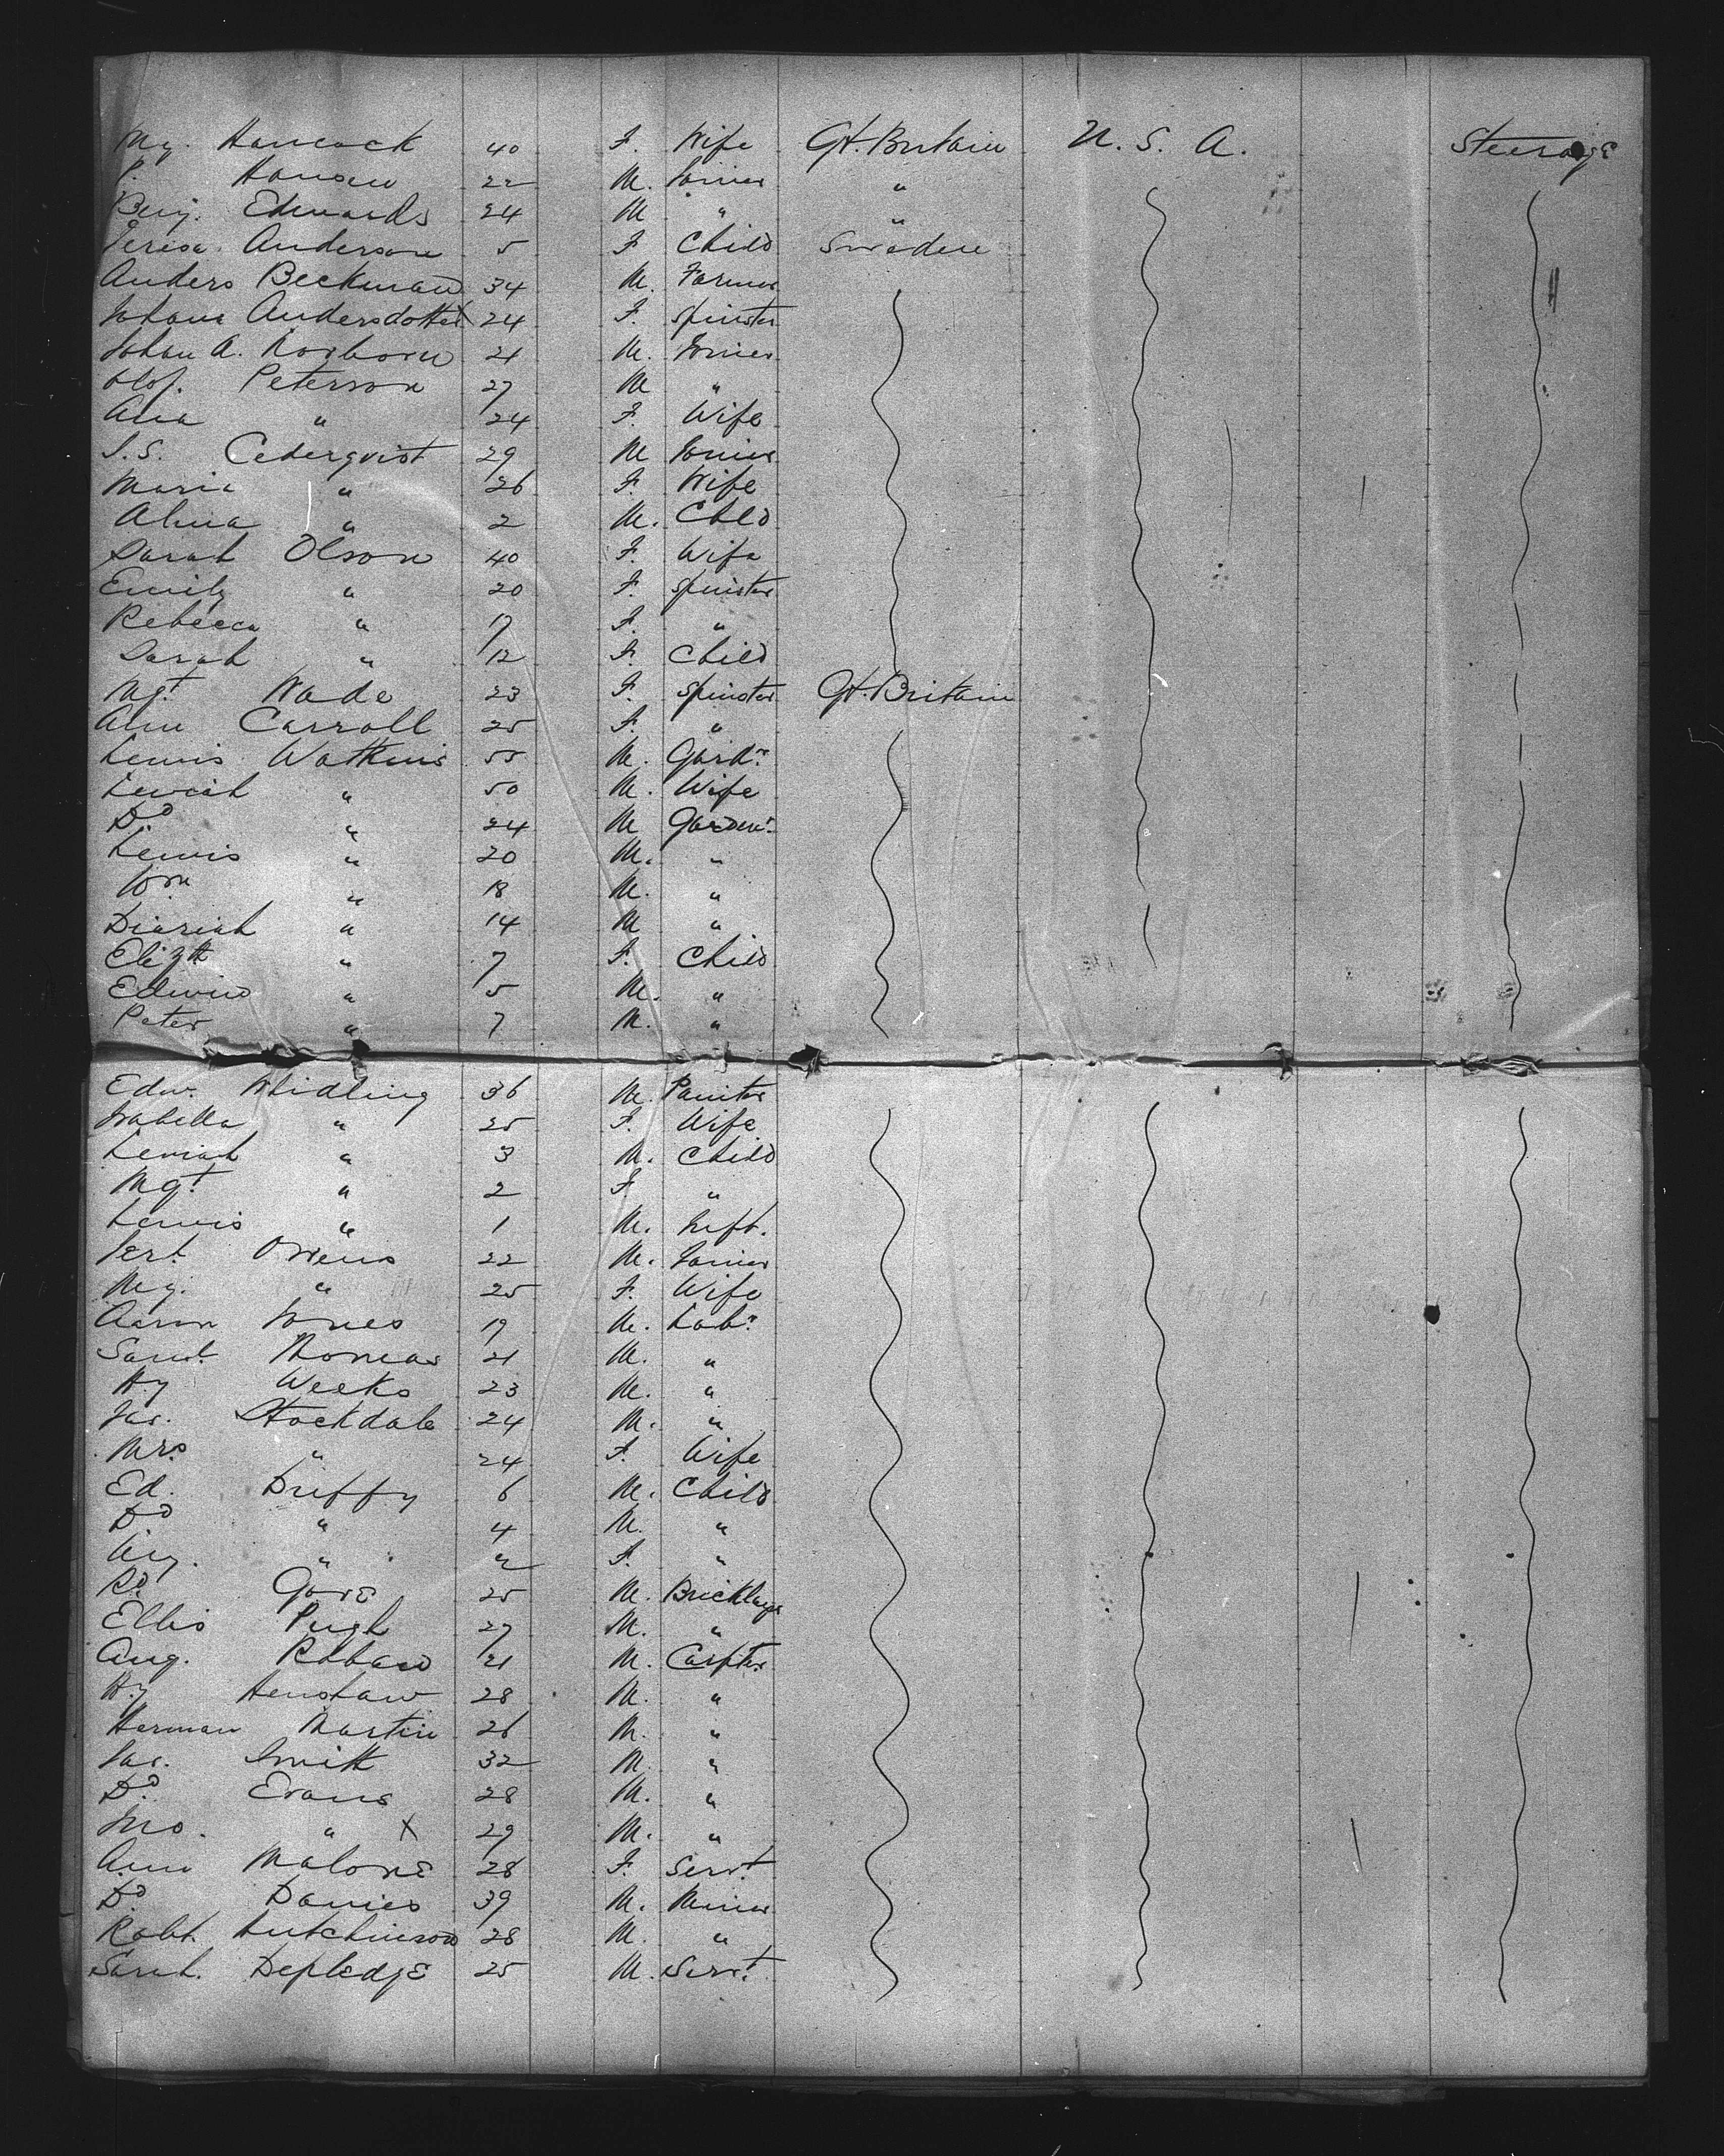 My. Hancock 40 F. Wife Gt. Britain U. S. A. Steerage
P. Hansen 22 M. Joiner "
Benj. Edwards 24 M " "
Teresa Anderson 5 F Child Sweden
Anders Beckman 34 M. Farmer
Johana Andersdotter X 24 F. Spinster
Johan A. 21 M. Joiner
Olof. Peterson 27 M "
Ana " 24 F. Wife
J. S. Cederqvist 29 M Joiner
Maria " 26 F. Wife
Alma " 2 M. Child
Sarah Olson 40 F. Wife
Emily " 20 F. Spinster
Rebecca " 17 F. "
Sarah " 12 F. Child
Mgt. Wade 23 F. Spinster Gt. Britain
Ann Carroll 25 F. "
Lewis Watkins 55 M. Gardr.
" 50 M. Wife
Dd " 24 M Gardenr.
Lewis " 20 M. "
Wm " 18 M. "
" 14 M "
Elizth " 7 F. Child
Edwin " 5 M. "
Peter " 7 M. "
Edw. Whidling 36 M. Painter
Isabella " 25 F. Wife
" 3 M. Child
Mgt. " 2 F "
Lewis " 1 M. Inft.
Owens 22 M. Joiner
My. " 25 F. Wife
Aaron Jones 19 M. Labr.
Saml. Thomas 21 M. "
Hy Weeks 23 M. "
Jas. Stockdale 24 M. "
Mrs " 24 F. Wife
Ed. Duffy 6 M. Child
Dd " 4 M. "
" 2 F. "
Rd. Gore 25 M. Bricklayr
Ellis Pugh 27 M. "
Aug. 21 M. Carpter.
Hy Henshaw 28 M. "
Herman Martin 26 M. "
Jas. Smith 32 M. "
Dd. Evans 28 M. "
Jno. " X 29 M. "
Ann Malone 28 F. Servt.
Dd. Davies 39 M. Miner
Robt. Hutchinson 28 M. "
Sarah. Depledge 25 M. Servt.